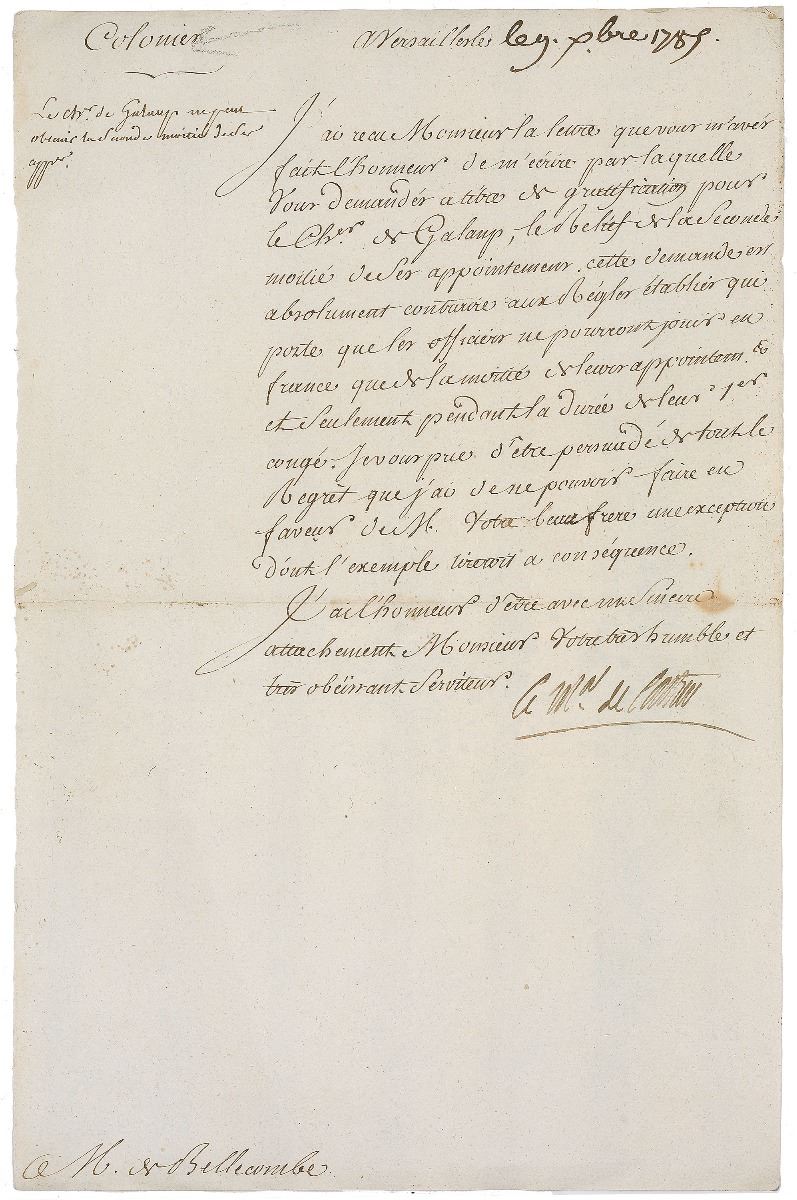 Colonies
A Versailles le 9. xbre 1785.
Le Chr. de Galaup ne peut
obtenir la seconde moitié de ses
appts.
J'ai reçu Monsieur la lettre que vous m'avez
fait l'honneur de m'écrire par laquelle
vous demandés a titre de gratification pour
le Cher. de Galaup, le Relief de la Seconde
moitié de ses appointemens. cette demande est
absolument contraire aux Régles établies qui
porte que les officiers ne pourront jouir en
france que de la moitié de leurs appointemens.
et seulement pendant la durée de leur 1er
congé. Je vous prie d'être persuadé de tout le
Regrèt que j'ai de ne pouvoir faire en
faveur de M. Votre beau frere une exception
dont l'exemple tireroit a conséquence.
J'ai l'honneur d'être avec un Sincere
attachement Monsieur Votre très humble et
très obéissant Serviteur.
Le Mal de Castries
A M. de Bellecombe.